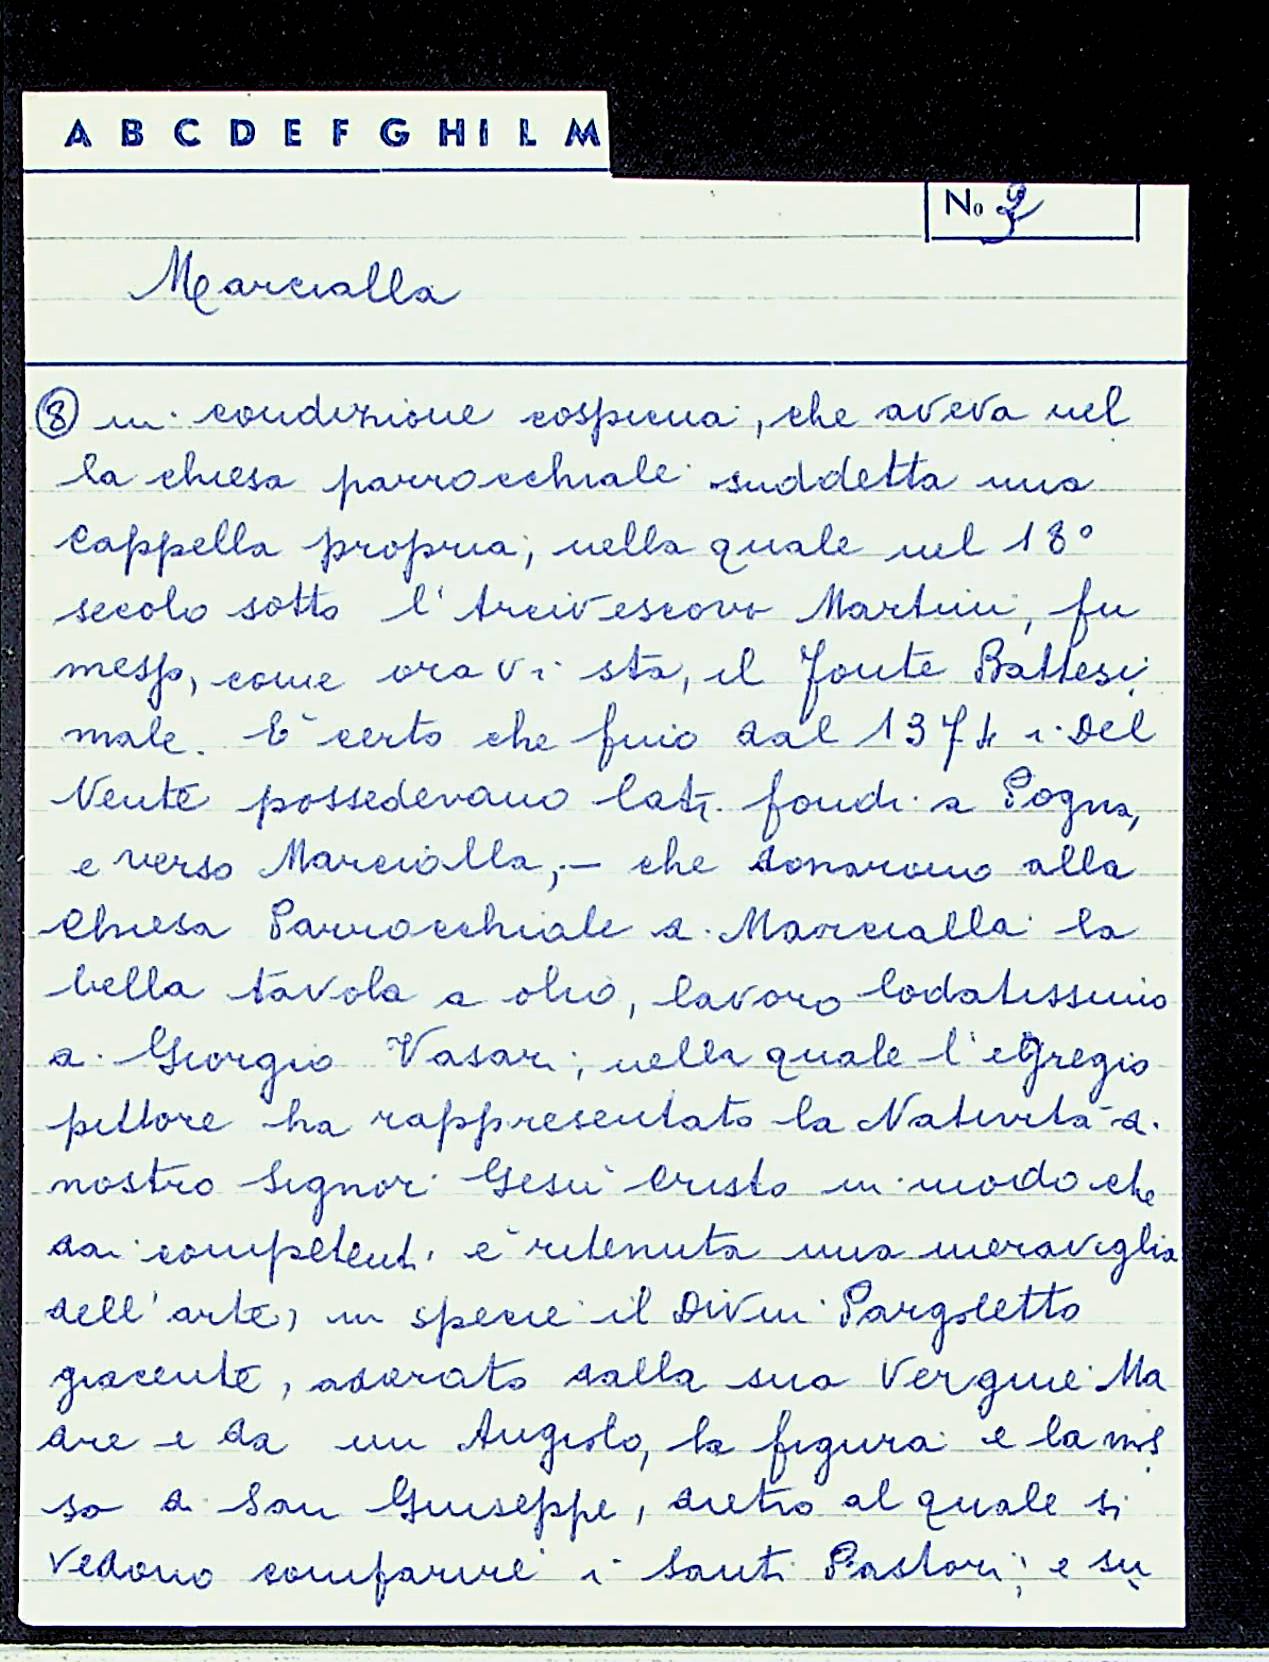 A B C D E F G H I L M
No
Marcialla
8 in condizione cospicua, che aveva nel
la chiesa parrocchiale suddetta una
Cappella propria; nella quale nel 18°
secolo sotto l'Arcivescovo Martini, fu
messo, come ora vi sta, il Fonte Battesi
male. E' certo che fino dal 1374 i Del
Nente possedevano lati fondi a Pogna,
e verso Marcialla, - che donarono alla
Chiesa Parrocchiale di Marcialla la
bella tavola a olio, lavoro lodatissimo
di Giorgio Vasari; nella quale l'egregio
pittore ha rappresentato la Natività di
nostro Signor Gesù Cristo in modo che
dai competenti è ritenuta una meraviglia
dell'arte, in specie il Divin Pargoletto
giacente, adorato dalla sua Vergine Ma
dre e da un Angiolo, la figura e la mos
sa di San Giuseppe, dietro al quale si
vedono comparire i Santi Pastori; e su